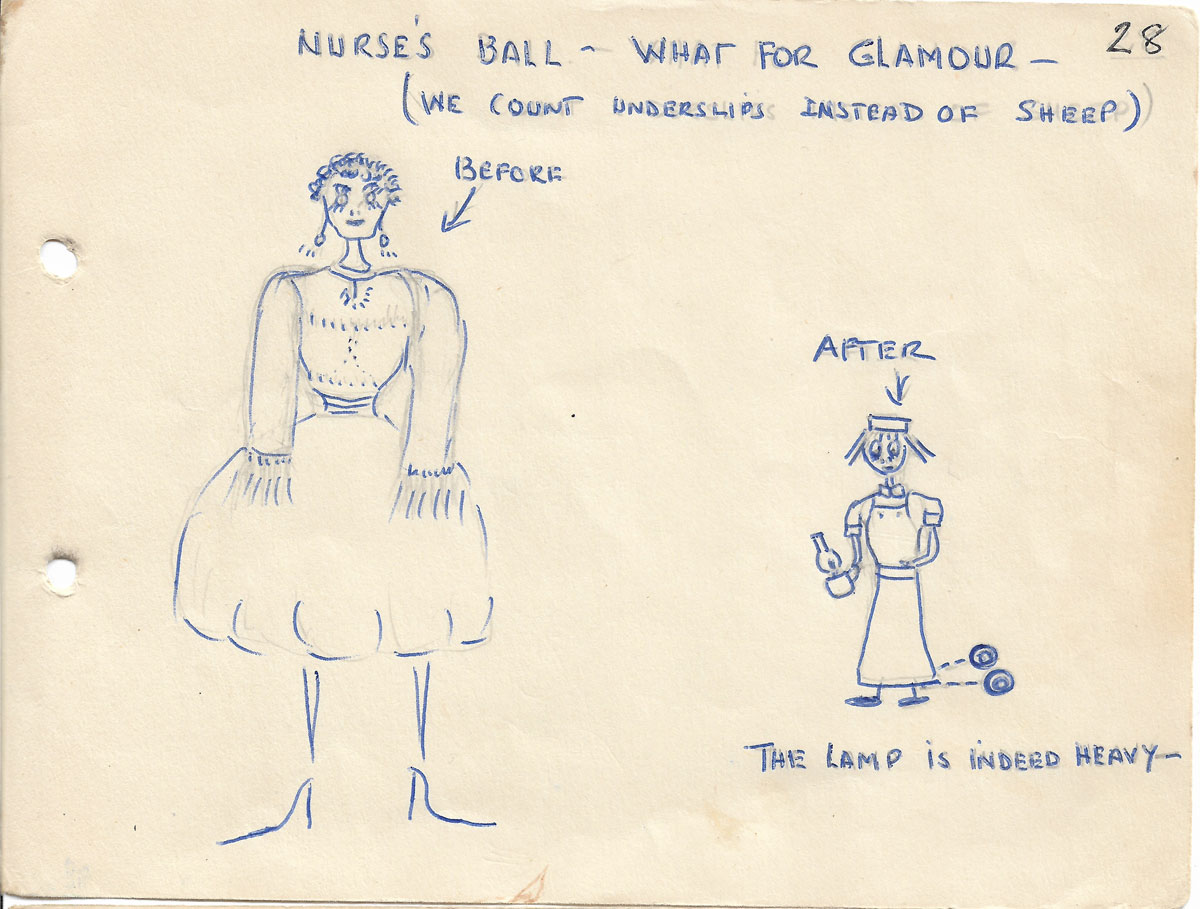 28
NURSE'S BALL – WHAT FOR GLAMOUR –
(WE COUNT UNDERSLIPS INSTEAD OF SHEEP)
BEFORE
AFTER
THE LAMP IS INDEED HEAVY–